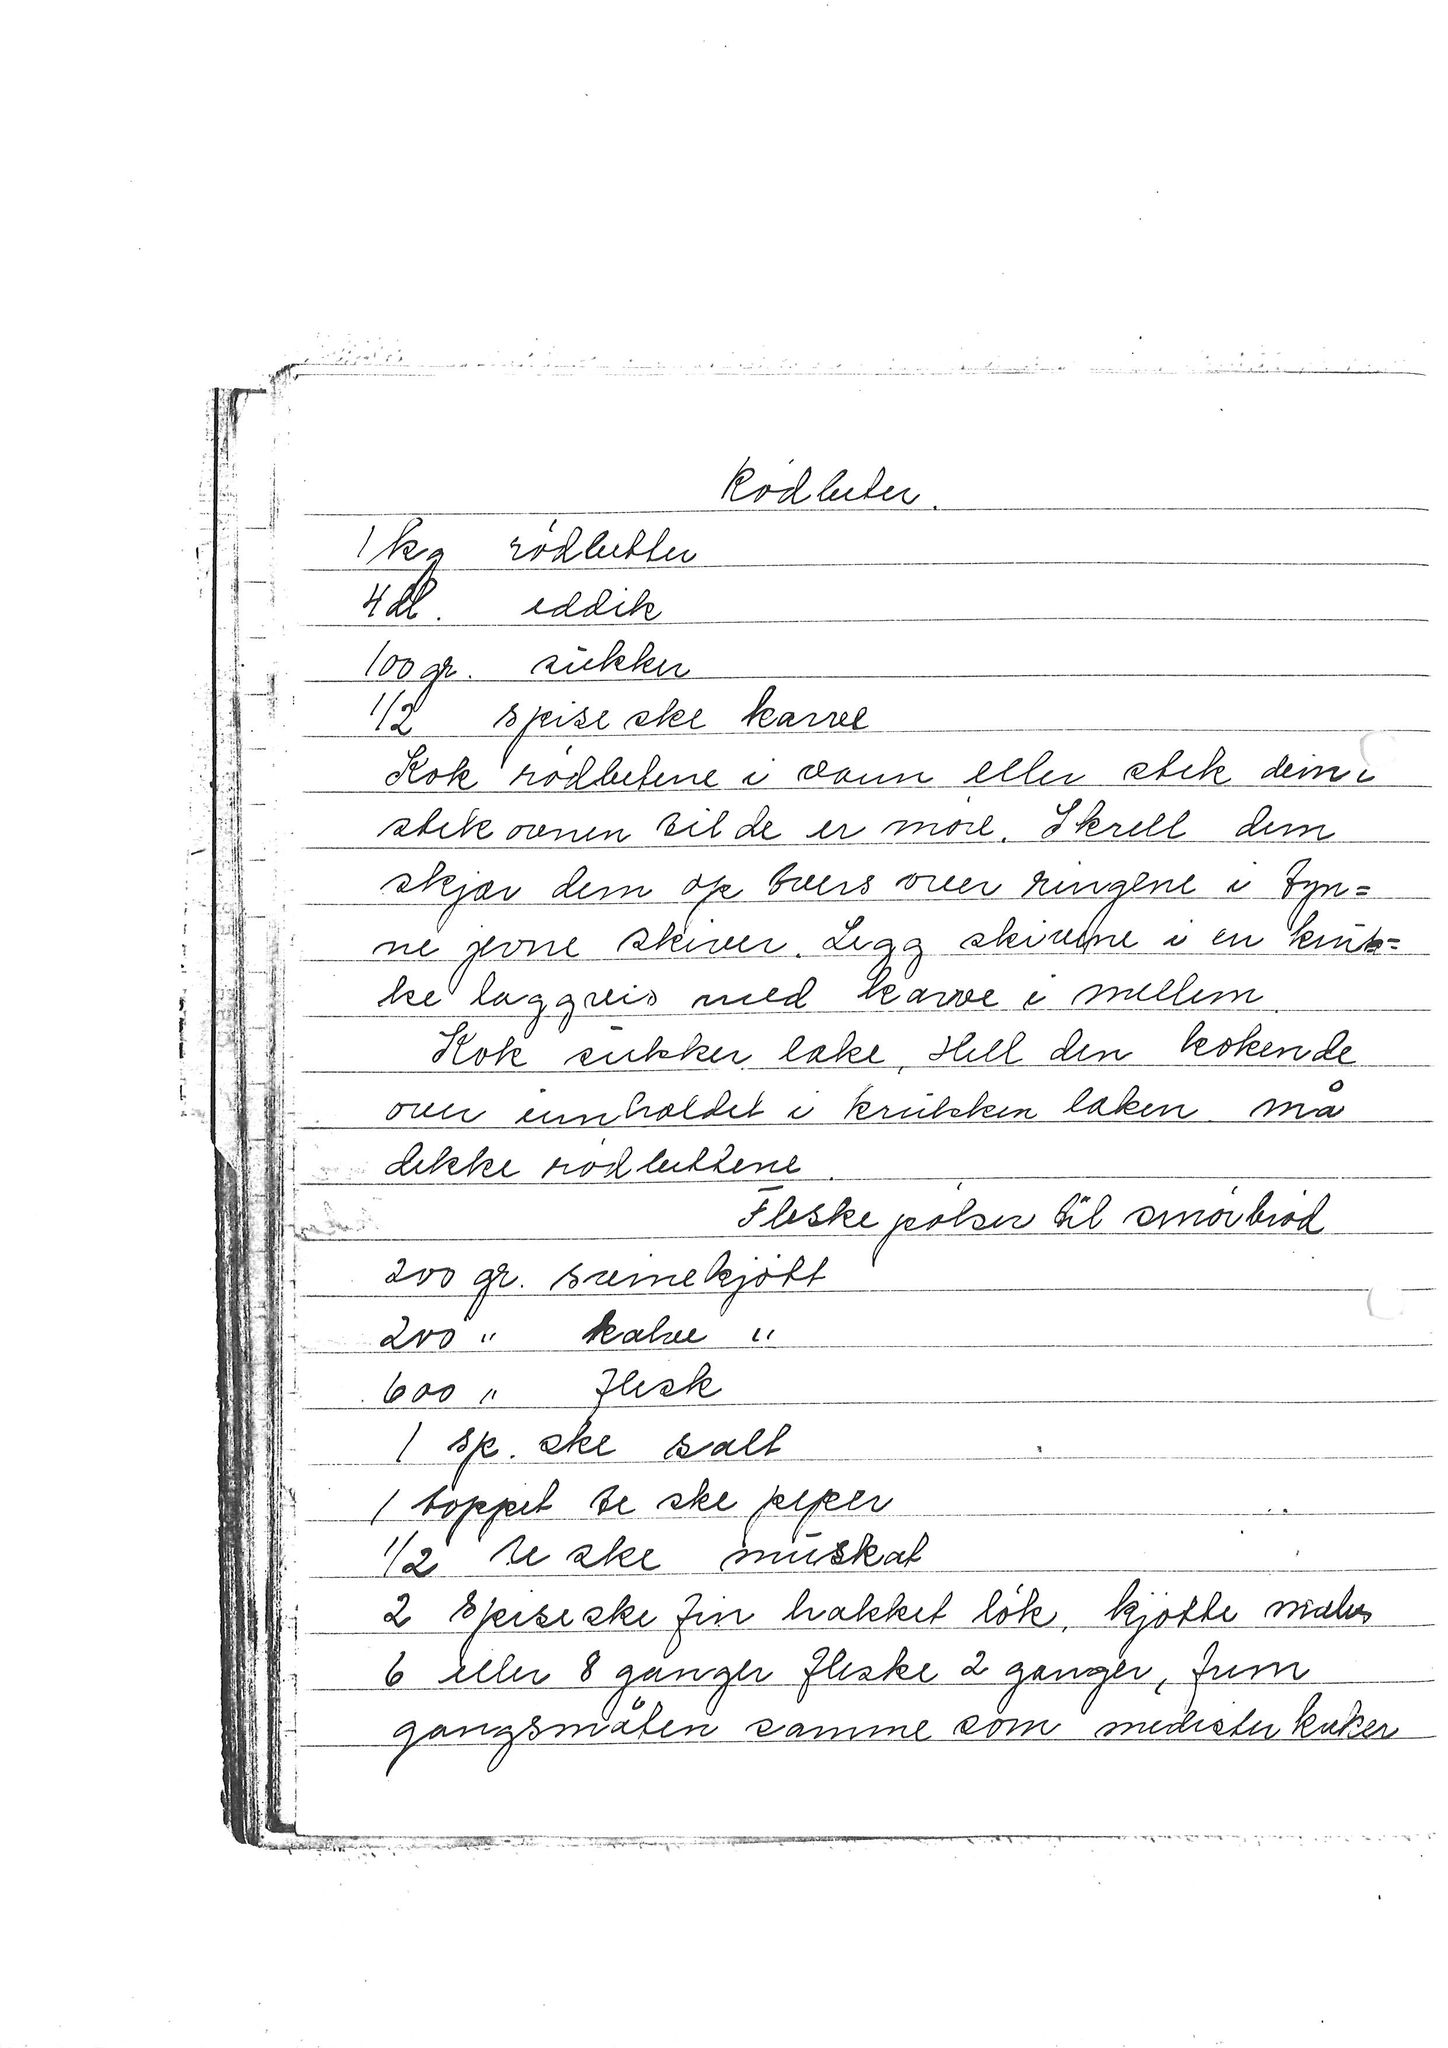 Rödbeter.
1 kg rödbetter
4 dl. eddik
100 gr. sukker
1/2 spise ske karve
Kok rödbetene i vann eller stek dem i
stek ovnen til de er möre. Skrell dem
skjær dem op tvers over ringene i tyn=
ne jevne skiver. Legg skivene i en kruk=
ke laggvis med karve i mellem.
Kok sukker lake, Hell den kokende
over innholdet i krukken laken må
dekke rödbettene.
Fleske pölser til smörbröd
200 gr. svinekjött
200 " kalve "
600 " flesk
1 sp. ske salt
1 toppet te ske peper
1/2 te ske muskat
2 spiseske fin hakket lök. kjötte males
6 eller 8 ganger fleske 2 ganger, frem
gangsmåten samme som medister kaker